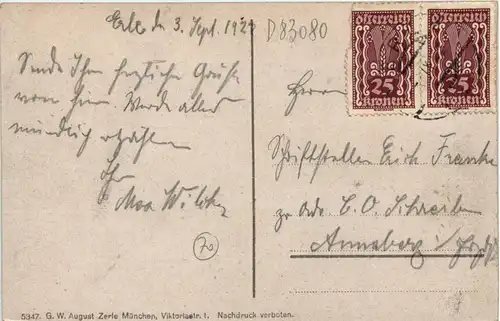 Erl den 3. Sept. 192
D83080
Sende Ihnen herzliche Grüße
von hier. Werde alles
mündlich erzählen
Ihr
Max
70
ÖSTERREICH
25
KRONEN
ÖSTERREICH
25
KRONEN
Herrn
Schriftsteller Erich Franke
C. O. Schreiber
Annaberg / Erzgb
5347. G. W. August Zerle München, Viktoriastr. 1. Nachdruck verboten.